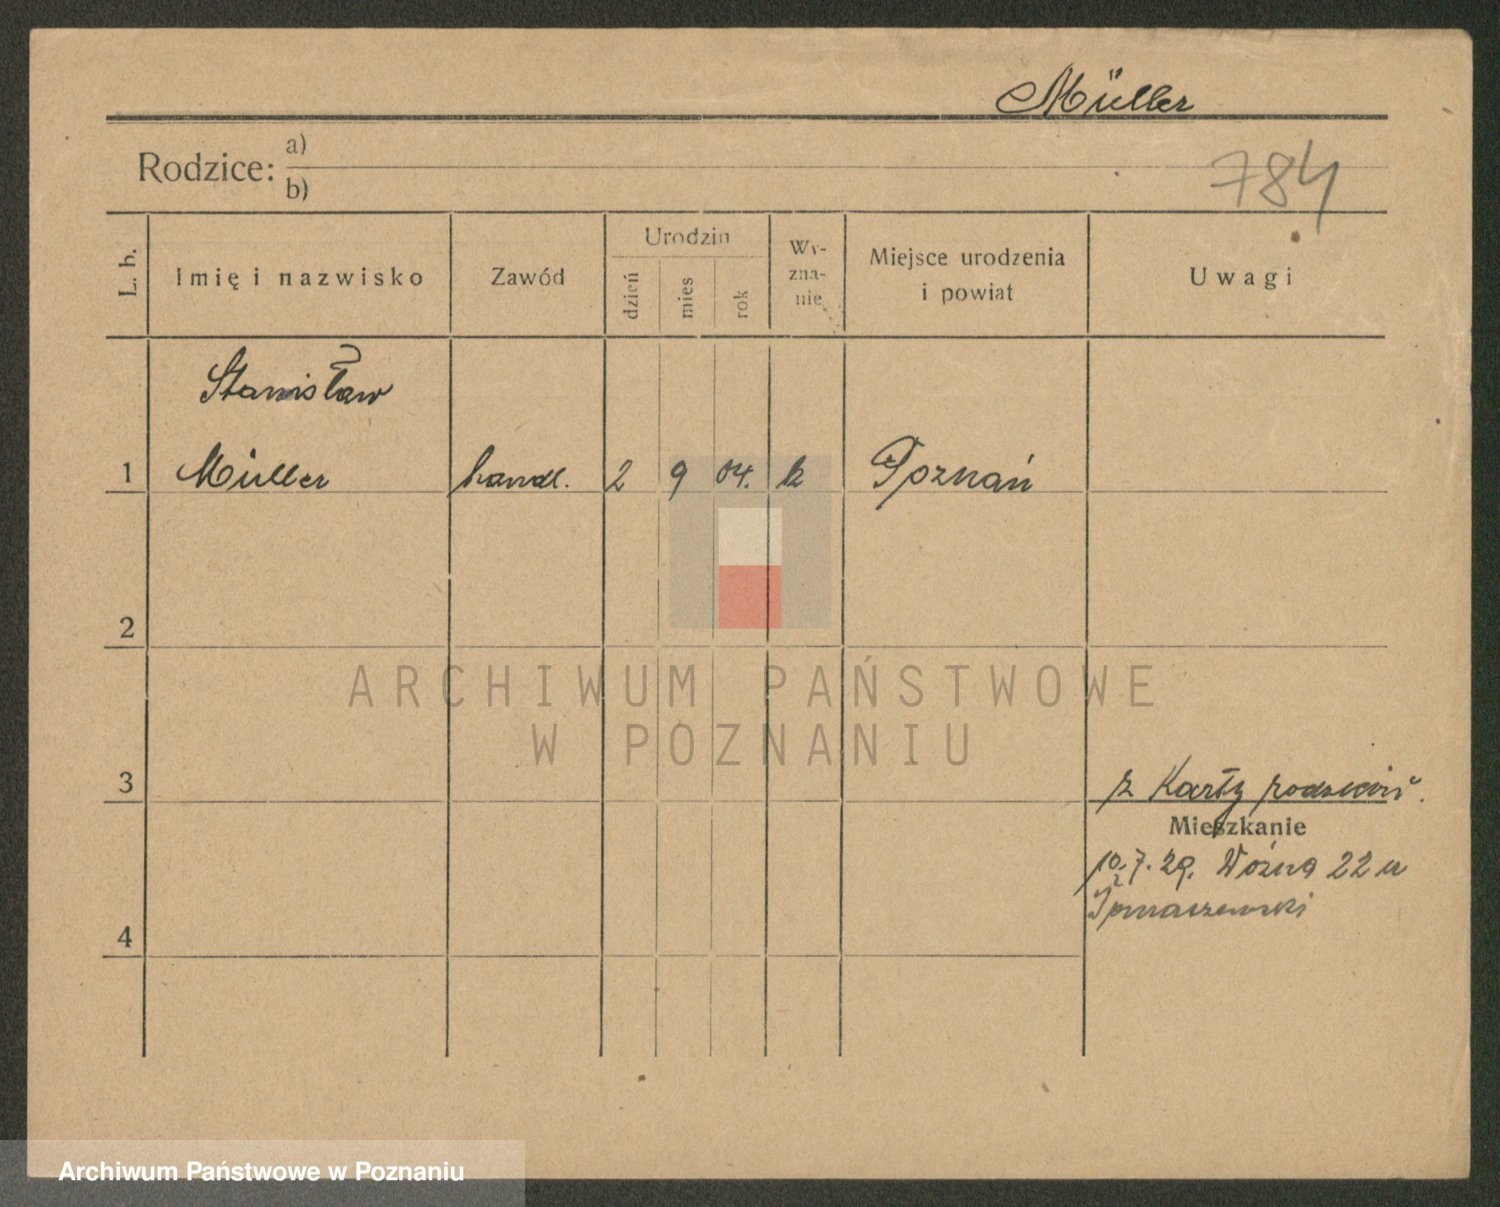 Müller
Rodzice: a)
b)
784
L. b.
Imię i nazwisko
Zawód
Urodzin
dzień
mies
rok
Wy-
zna-
nie
Miejsce urodzenia
i powiat
Uwagi
Stanisław
1 Müller handl. 2 9 04. k Poznań
2
ARCHIWUM PAŃSTWOWE
W POZNANIU
3
z Karty rodziców.
Mieszkanie
10.7.29. Woźna 22 u
Tomaszewski
4
Archiwum Państwowe w Poznaniu